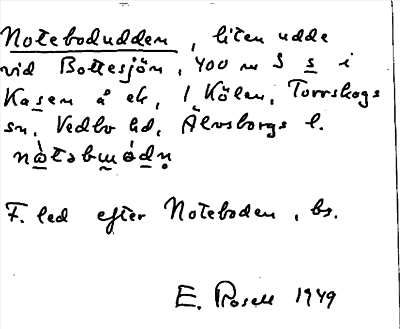 Notebodudden, liten udde
vid Bottesjön, 400 m S s i
Kasen å ek, 1 Kölen, Torrskogs
sn, Vedbo hd, Älvsborgs l.
F. led efter Noteboden, bs.
E. Rosell 1949